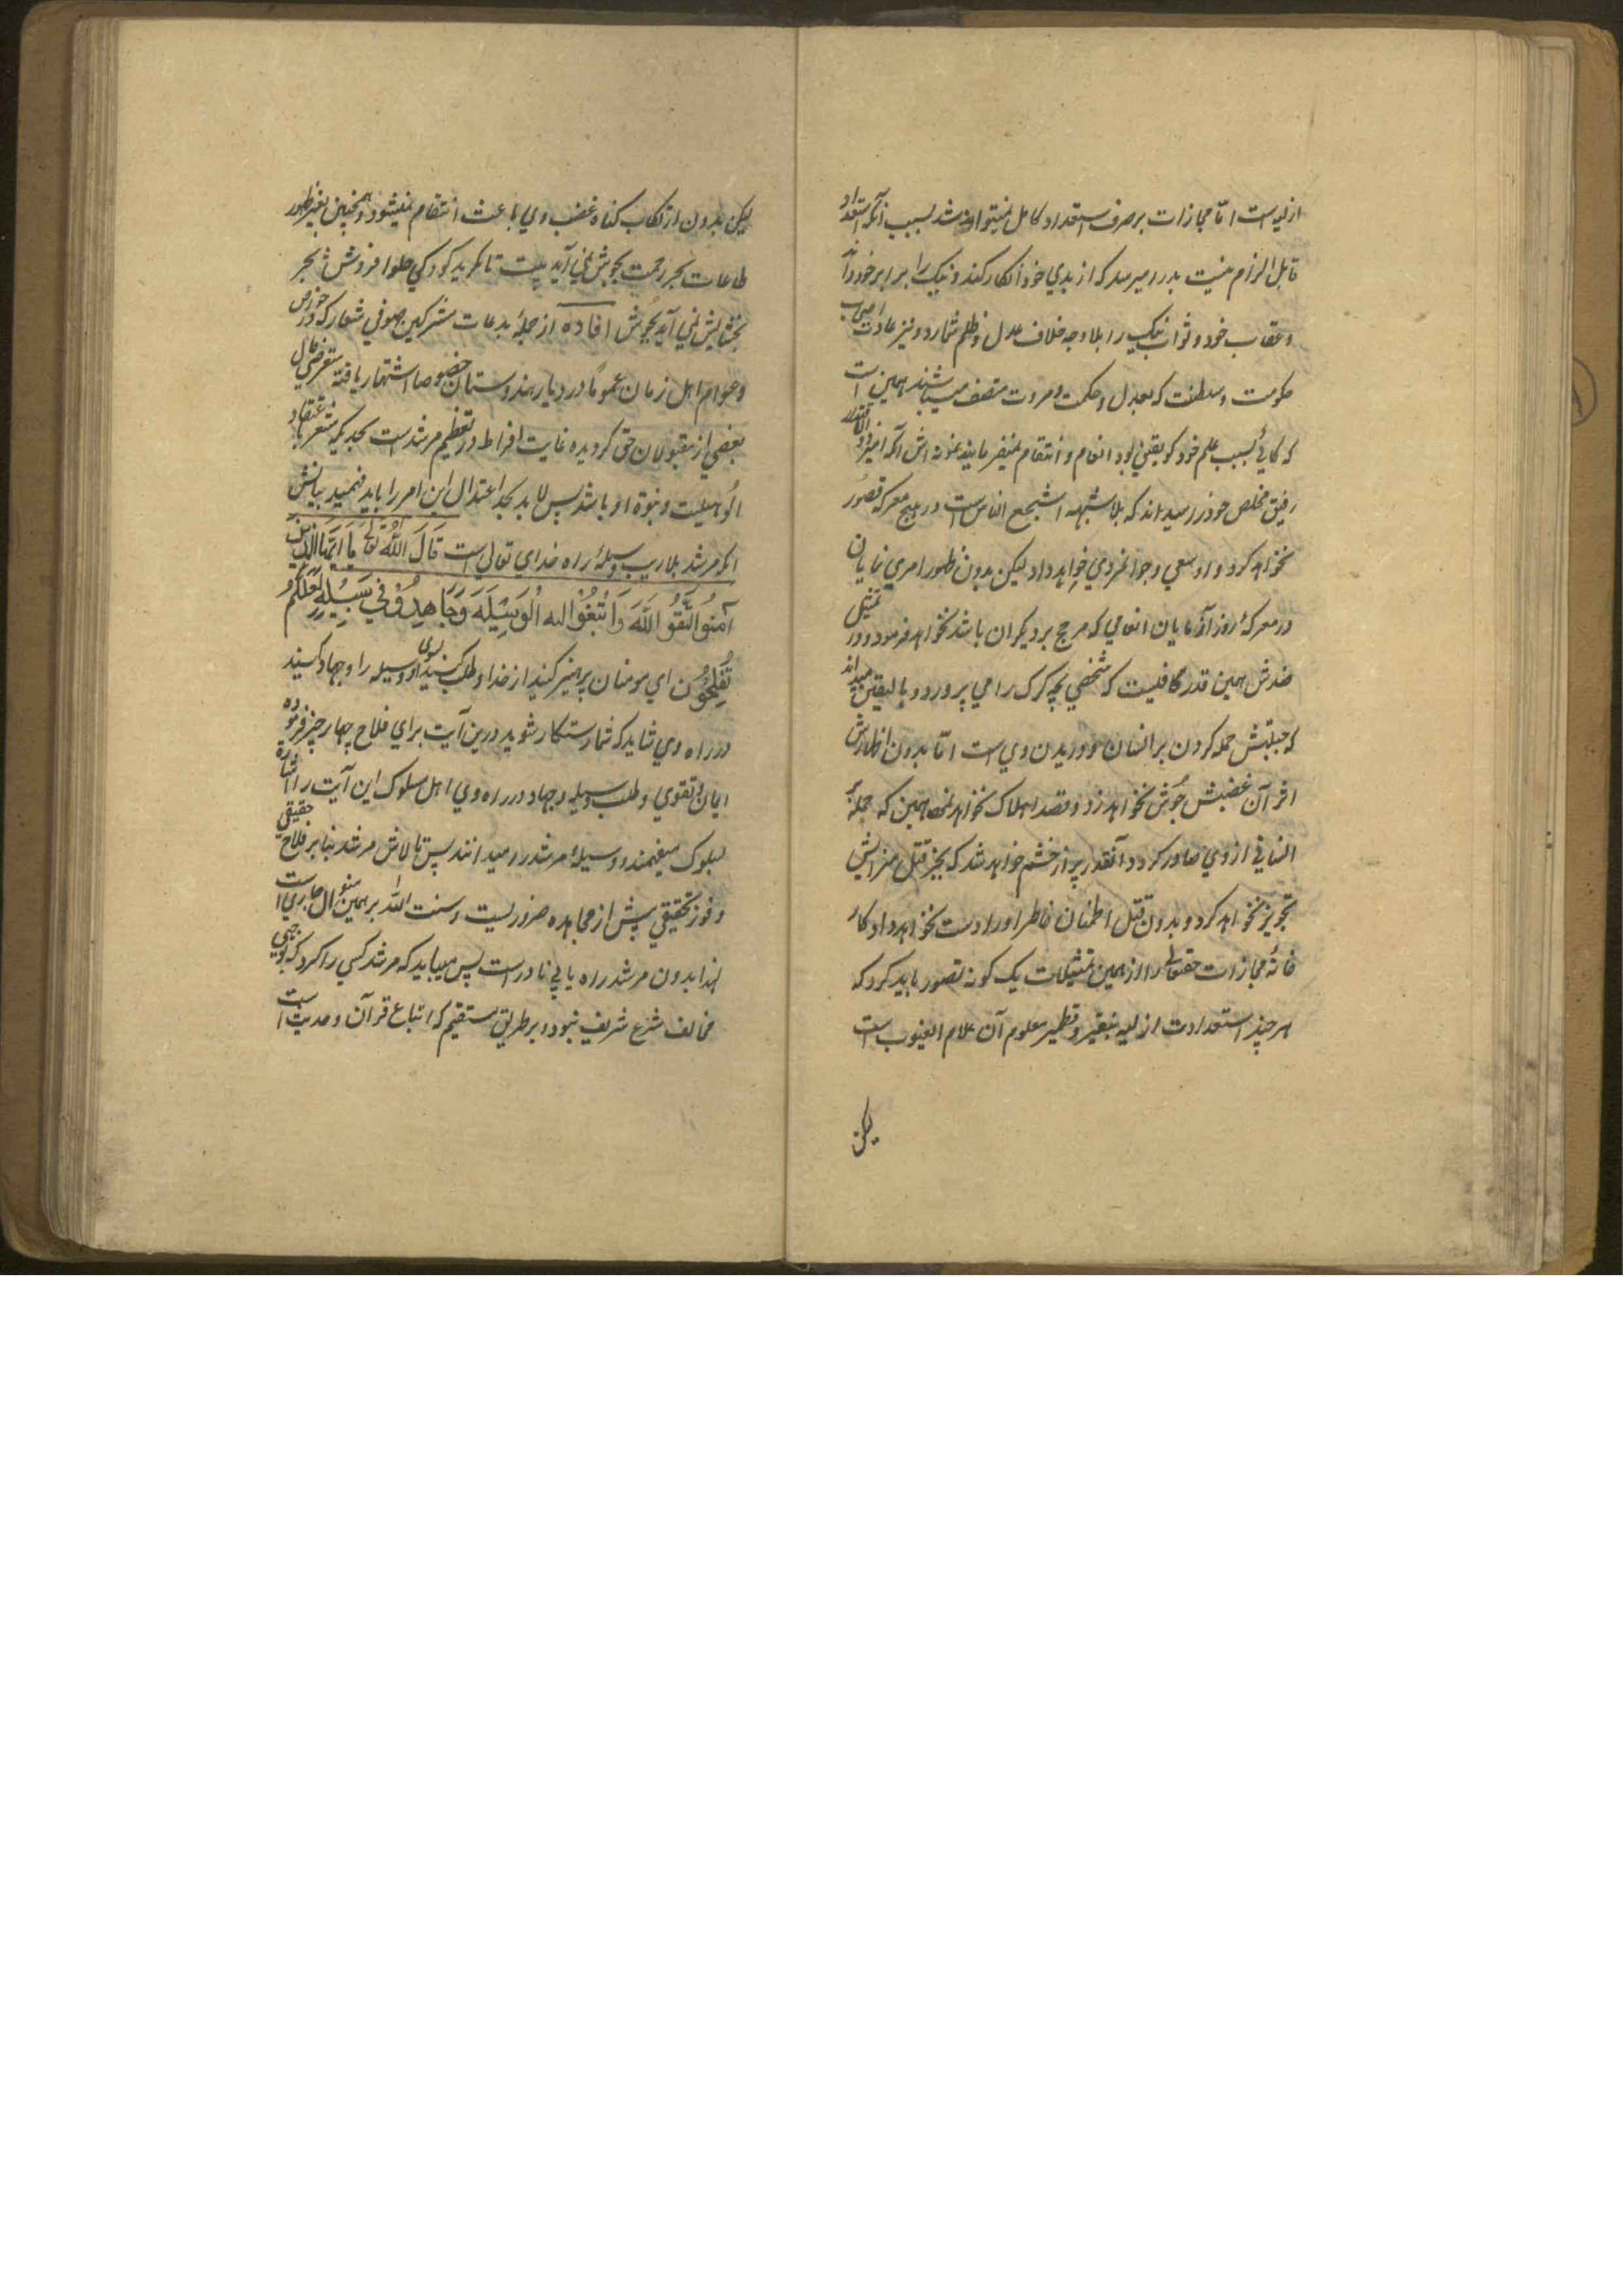 ازلیه است اما مجازات بر صرف استعداد کامل نمیتواند شد بسبب آنکه استعداد
قابل الزام نیست بدرد میرسد که از بدی خود انکار کند و نیک را برابر خود داند
و عقاب خود و ثواب نیک را بلا وجه خلاف عدل و ظلم شمارد و نیز عادت اصحاب
حکومت و سلطنت که بعدل و حکمت و مروت متصف میباشند همین است
که گاهی بسبب علم خود کو یقینی بود انعام و انتقام نمیفرمایند نمونه اش آنکه امیر
رفیق مخلص خود را میداند که بلا شبهه اشجع الناس است در هیچ معرکه قصور
نخواهد کرد و داد سعی و جوانمردی خواهد داد لیکن بدون ظهور امری نمایان
در معرکهٔ روز آزمایان انعامی که مرجح بر دیگران باشد نخواهد فرمود و در تمثیل
ضدش همین قدر کافیست که شخصی بچه گرگ را می پرورد و بالیقین میداند
که جبلتش حمله کردن بر انسان و دریدن وی است اما بدون اظهارش
اثر آن غضبش جوش نخواهد زد و قصد اهلاک نخواهد نمود همین که حمله بر
انسانی از وی صادر گردد آنقدر پر از خشم خواهد شد که بجز قتل سزایش
تجویز نخواهد کرد و بدون قتل اطمنان خاطر او را دست نخواهد داد کار
خانهٔ مجازات حقتعالی را از همین تمثیلات یک گونه تصور باید کرد که
هر چند استعدادات ازلیه بنقیر و قطمیر معلوم آن علام الغیوب است
لیکن
لیکن بدون ارتکاب گناه غضب وی باعث انتقام نمیشود و همچنین بغیر ظهور
طاعات بحر رحمت بجوش نمی آید بیت تا نگرید کودکی حلوا فروش * بحر
بخشایش نمی آید بجوش افاده از جملهٔ بدعات مشرکین صوفی شعار که در خواص
و عوام اهل زمان عموما در دیار هندوستان خصوصا اشتهار یافته
بعضی از مقبولان حق گردیده غایت افراط در تعظیم مرشد است بحدیکه مشعر باعتقاد
الوهیت و نبوة او باشد پس لابد بحد اعتدال این امر را باید فهمید بیانش
آنکه مرشد بلا ریب وسیلهٔ راه خدای تعالی است قَالَ اللهُ تَعَالَى یَا اَیُّهَا الَّذِینَ
آمَنُوا اتَّقُوا اللهَ وَابْتَغُوا الیه الْوَسِیْلَهَ وَجَاهِدُوْ فِی سَبِیْلِهِ لَعَلَّکُمْ
تُفْلِحُوْن ای مومنان پرهیز کنید از خدا و طلب کنید بسوی او وسیله را و جهاد کنید
در راه وی شاید که شما رستگار شوید درین آیت برای فلاح چهار چیز فرموده
ایمان و تقوی و طلب وسیله و جهاد در راه وی اهل سلوک این آیت را اشارة
بسلوک میفهمند و وسیلهٔ مرشد را میدانند پس تلاش مرشد بنا بر فلاح حقیقی
و فوز تحقیقی پیش از مجاهده ضروریست و سنت الله بر همین منوال جاری است
لهذا بدون مرشد راه یابی نادر است پس میباید که مرشد کسی را کرد که بوجهی
مخالف شرع شریف نبود و بر طریق مستقیم که اتباع قرآن و حدیث است